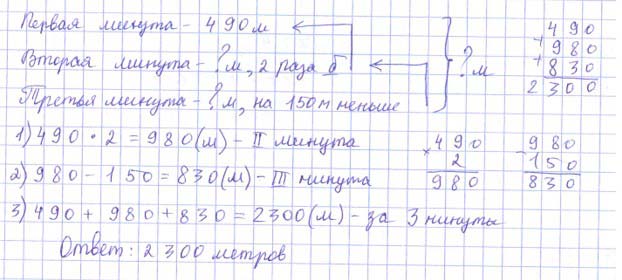 Первая минута - 490 м
Вторая минута - ?м, 2 раза б
Третья минута - ?м, на 150м меньше
?м
490
+
980
+
830
2300
1) 490 · 2 = 980 (м) - II минута
2) 980 - 150 = 830 (м) - III минута
3) 490 + 980 + 830 = 2300 (м) - за 3 минуты
Ответ: 2 300 метров
× 490
2
980
- 980
150
830